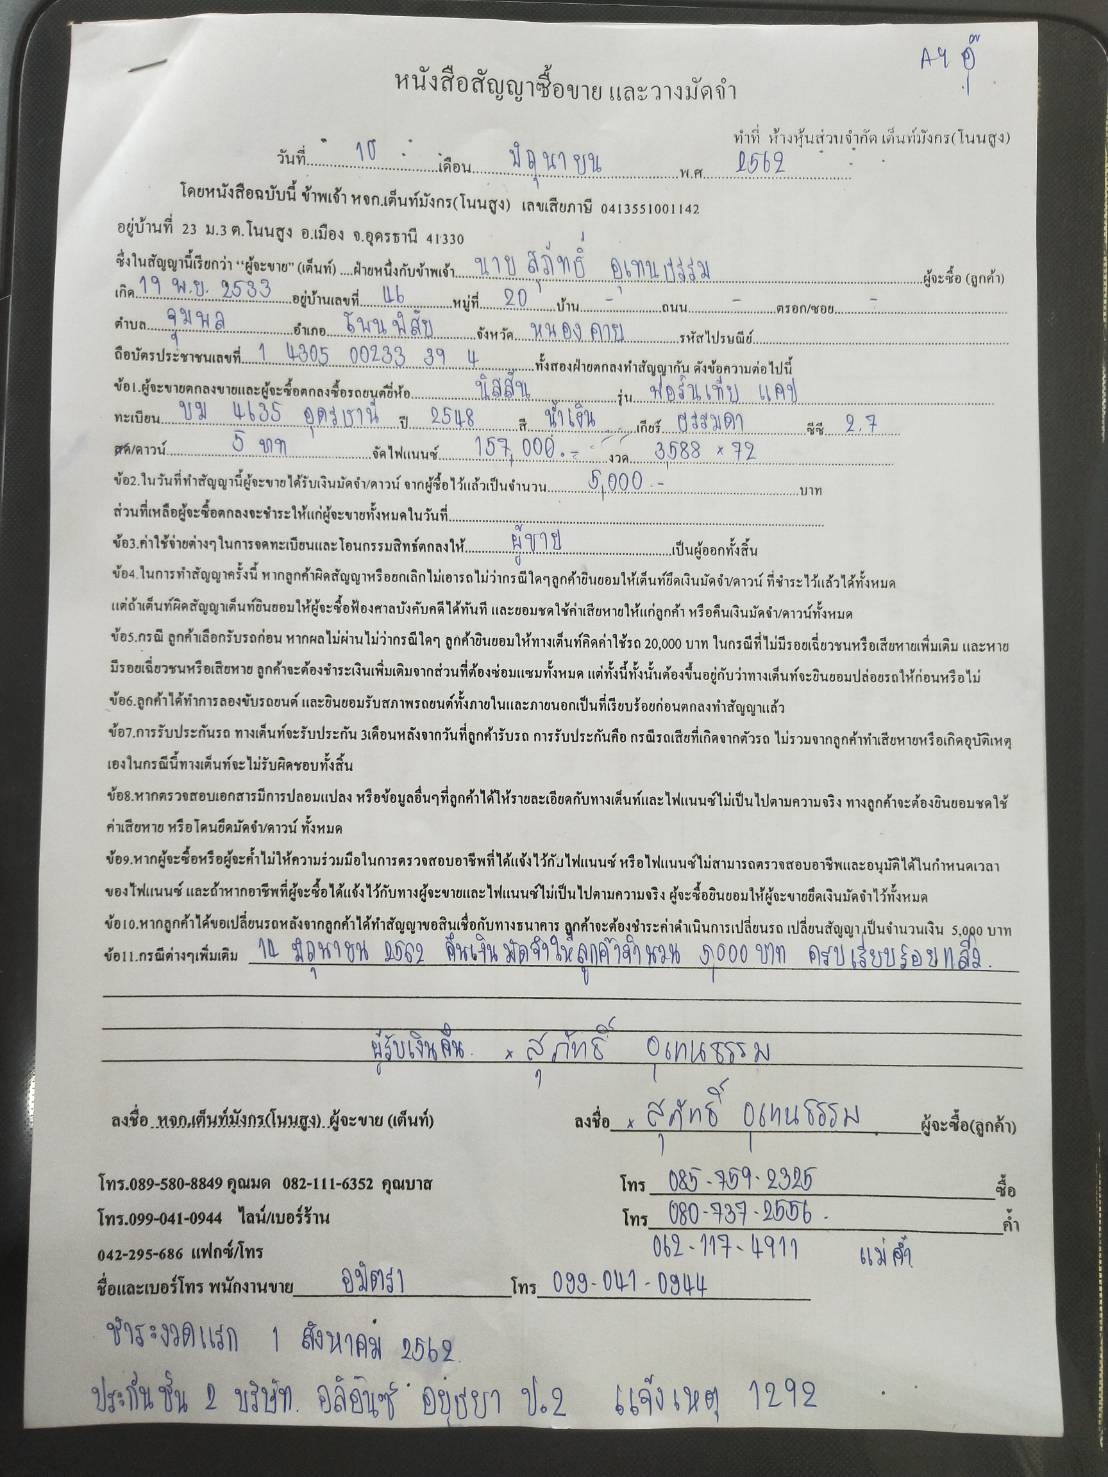 AY อุ๊
หนังสือสัญญาซื้อขาย และวางมัดจำ
ทำที่ ห้างหุ้นส่วนจำกัด เต็นท์มังกร(โนนสูง)
วันที่ 10 เดือน มิถุนายน พ.ศ 2562
โดยหนังสือฉบับนี้ ข้าพเจ้า หจก.เต็นท์มังกร(โนนสูง) เลขเสียภาษี 0413551001142
อยู่บ้านที่ 23 ม.3 ต.โนนสูง อ.เมือง จ.อุดรธานี 41330
ซึ่งในสัญญานี้เรียกว่า "ผู้จะขาย" (เต็นท์) ....ฝ่ายหนึ่งกับข้าพเจ้า นาย สุภัทธิ์ อุเทนธรรม ผู้จะซื้อ (ลูกค้า)
เกิด 19 พ.ย. 2533 อยู่บ้านเลขที่ 46 หมู่ที่ 20 บ้าน - ถนน - ตรอก/ซอย -
ตำบล จุมพล อำเภอ โพนพิสัย จังหวัด หนองคาย รหัสไปรษณีย์
ถือบัตรประชาชนเลขที่ 1 4305 00233 39 4 ทั้งสองฝ่ายตกลงทำสัญญากัน ดังข้อความต่อไปนี้
ข้อ1.ผู้จะขายตกลงขายและผู้จะซื้อตกลงซื้อรถยนต์ยี่ห้อ นิสสัน รุ่น ฟอร์นเทีย แคป
ทะเบียน บม 4635 อุดรธานี ปี 2548 สี น้ำเงิน เกียร์ ธรรมดา ซีซี 2.7
สด/ดาวน์ 5 บาท จัดไฟแนนซ์ 157,000.- งวด 3,588 × 72
ข้อ2.ในวันที่ทำสัญญานี้ผู้จะขายได้รับเงินมัดจำ/ดาวน์ จากผู้ซื้อไว้แล้วเป็นจำนวน 5,000.- บาท
ส่วนที่เหลือผู้จะซื้อตกลงจะชำระให้แก่ผู้จะขายทั้งหมดในวันที่
ข้อ3.ค่าใช้จ่ายต่างๆในการจดทะเบียนและโอนกรรมสิทธ์ตกลงให้ ผู้ขาย เป็นผู้ออกทั้งสิ้น
ข้อ4.ในการทำสัญญาครั้งนี้ หากลูกค้าผิดสัญญาหรือยกเลิกไม่เอารถไม่ว่ากรณีใดๆลูกค้ายินยอมให้เต็นท์ยึดเงินมัดจำ/ดาวน์ ที่ชำระไว้แล้วได้ทั้งหมด
แต่ถ้าเต็นท์ผิดสัญญาเต็นท์ยินยอมให้ผู้จะซื้อฟ้องศาลบังคับคดีได้ทันที และยอมชดใช้ค่าเสียหายให้แก่ลูกค้า หรือคืนเงินมัดจำ/ดาวน์ทั้งหมด
ข้อ5.กรณี ลูกค้าเลือกรับรถก่อน หากผลไม่ผ่านไม่ว่ากรณีใดๆ ลูกค้ายินยอมให้ทางเต็นท์คิดค่าใช้รถ 20,000 บาท ในกรณีที่ไม่มีรอยเฉี่ยวชนหรือเสียหายเพิ่มเติม และหาย
มีรอยเฉี่ยวชนหรือเสียหาย ลูกค้าจะต้องชำระเงินเพิ่มเติมจากส่วนที่ต้องซ่อมแซมทั้งหมด แต่ทั้งนี้ทั้งนั้นต้องขึ้นอยู่กับว่าทางเต็นท์จะยินยอมปล่อยรถให้ก่อนหรือไม่
ข้อ6.ลูกค้าได้ทำการลองขับรถยนต์ และยินยอมรับสภาพรถยนต์ทั้งภายในและภายนอกเป็นที่เรียบร้อยก่อนตกลงทำสัญญาแล้ว
ข้อ7.การรับประกันรถ ทางเต็นท์จะรับประกัน 3เดือนหลังจากวันที่ลูกค้ารับรถ การรับประกันคือ กรณีรถเสียที่เกิดจากตัวรถ ไม่รวมจากลูกค้าทำเสียหายหรือเกิดอุบัติเหตุ
เองในกรณีนี้ทางเต็นท์จะไม่รับผิดชอบทั้งสิ้น
ข้อ8.หากตรวจสอบเอกสารมีการปลอมแปลง หรือข้อมูลอื่นๆที่ลูกค้าได้ให้รายละเอียดกับทางเต็นท์และไฟแนนซ์ไม่เป็นไปตามความจริง ทางลูกค้าจะต้องยินยอมชดใช้
ค่าเสียหาย หรือโดนยึดมัดจำ/ดาวน์ ทั้งหมด
ข้อ9.หากผู้จะซื้อหรือผู้จะค้ำไม่ให้ความร่วมมือในการตรวจสอบอาชีพที่ได้แจ้งไว้กับไฟแนนซ์ หรือไฟแนนซ์ไม่สามารถตรวจสอบอาชีพและอนุมัติได้ในกำหนดเวลา
ของไฟแนนซ์ และถ้าหากอาชีพที่ผู้จะซื้อได้แจ้งไว้กับทางผู้จะขายและไฟแนนซ์ไม่เป็นไปตามความจริง ผู้จะซื้อยินยอมให้ผู้จะขายยึดเงินมัดจำไว้ทั้งหมด
ข้อ10.หากลูกค้าได้ขอเปลี่ยนรถหลังจากลูกค้าได้ทำสัญญาขอสินเชื่อกับทางธนาคาร ลูกค้าจะต้องชำระค่าดำเนินการเปลี่ยนรถ เปลี่ยนสัญญา เป็นจำนวนเงิน 5,000 บาท
ข้อ11.กรณีต่างๆเพิ่มเติม 14 มิถุนายน 2562 คืนเงินมัดจำให้ลูกค้าจำนวน 5,000 บาท ครบเรียบร้อยแล้ว.
ผู้รับเงินคืน × สุภัทธิ์ อุเทนธรรม
ลงชื่อ หจก.เต็นท์มังกร(โนนสูง) ผู้จะขาย (เต็นท์) ลงชื่อ × สุภัทธิ์ อุเทนธรรม ผู้จะซื้อ(ลูกค้า)
โทร.089-580-8849 คุณมด 082-111-6352 คุณบาส โทร 085-759-2325 ซื้อ
โทร.099-041-0944 ไลน์/เบอร์ร้าน โทร 080-737-2556. ค้ำ
042-295-686 แฟกซ์/โทร 062-117-4911 แม่ค้ำ
ชื่อและเบอร์โทร พนักงานขาย อมิตรา โทร 099-041-0944
ชำระงวดแรก 1 สิงหาคม 2562
ประกันชั้น 2 บริษัท. อลิอันซ์ อยุธยา ป.2 แจ้งเหตุ 1292